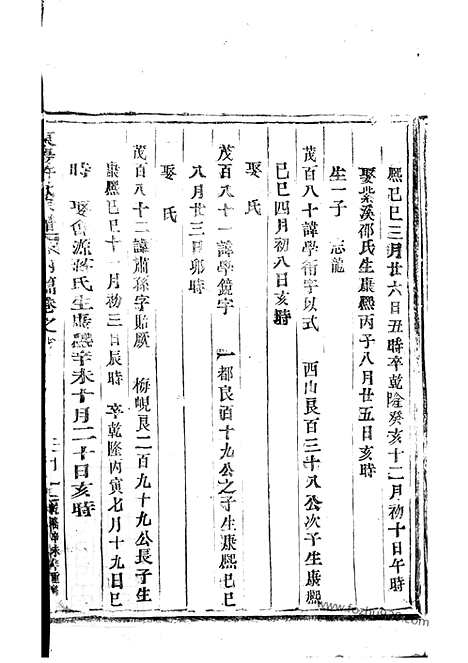 熙己巳三月廿六日丑時卒乾隆癸亥十二月初十日午時
娶紫溪邵氏生康熙丙子八月廿五日亥時
生一子 志龍
茂百八十諱學衛字以式 西山良百三十八公次子生康熙
己巳四月初八日亥時
娶 氏
茂百八十一諱學鏡字 一都良百十九公之子生康熙己巳
八月廿三日卯時
娶 氏
茂百八十二諱肅孫字貽厥 梅峴良二百九十九公長子生
康熙己巳十一月初三日辰時 卒乾隆丙寅七月十九日巳
時 娶會源蔣氏生康熙辛未十月二十日亥時